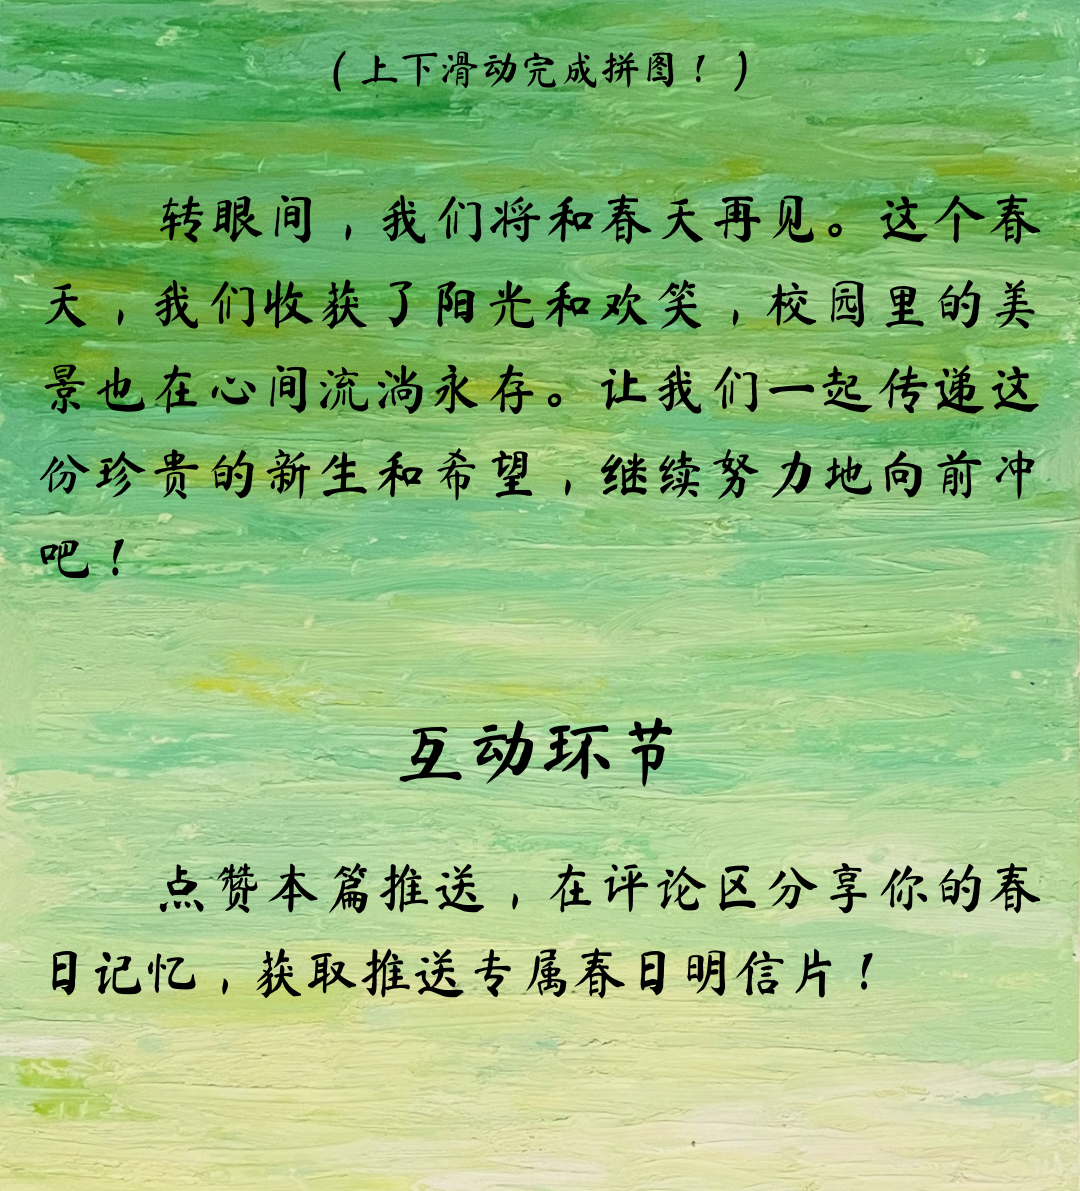 （上下滑动完成拼图！）
转眼间，我们将和春天再见。这个春
天，我们收获了阳光和欢笑，校园里的美
景也在心间流淌永存。让我们一起传递这
份珍贵的新生和希望，继续努力地向前冲
吧！
互动环节
点赞本篇推送，在评论区分享你的春
日记忆，获取推送专属春日明信片！